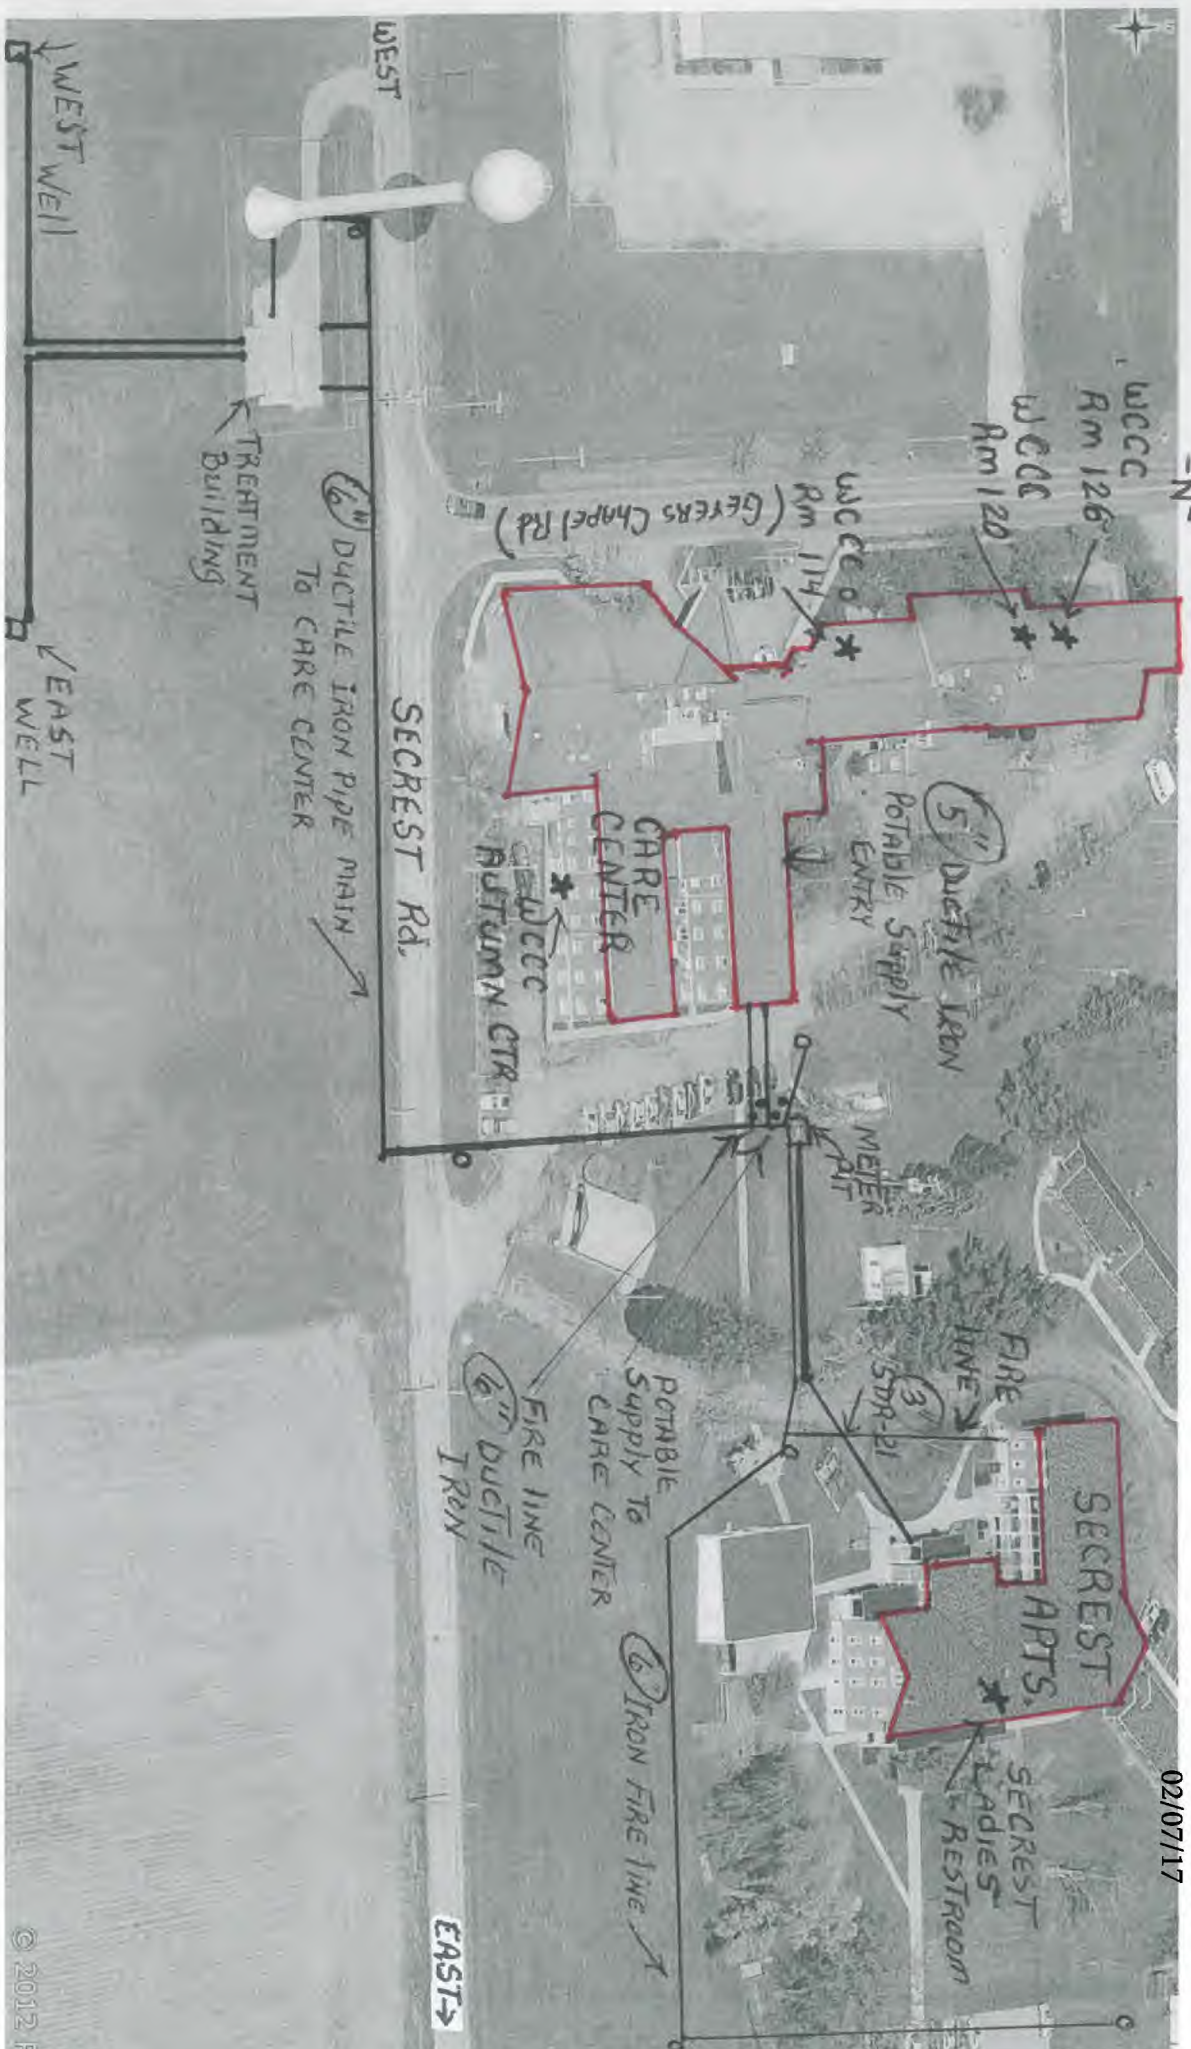 02/07/17
N
WCCC
Rm 126
WCCC
Rm 120
WCCC
Rm 114
(GEYERS CHAPEL Rd)
WEST
WEST WEll
TREATMENT
Building
EAST
WELL
6" DUCTILE IRON PIPE MAIN
To CARE CENTER
SECREST Rd.
CARE
CENTER
WCCC
AUTUMN CTR
5" DUCTILE IRON
POTABLE Supply
ENTRY
METER
PIT
FIRE
LINE
3"
SDR-21
POTABLE
Supply To
CARE CENTER
FIRE LINE
6" DUCTILE
IRON
6" IRON FIRE LINE
SECREST
APTS.
SECREST
LADIES
RESTROOM
EAST→
© 2012